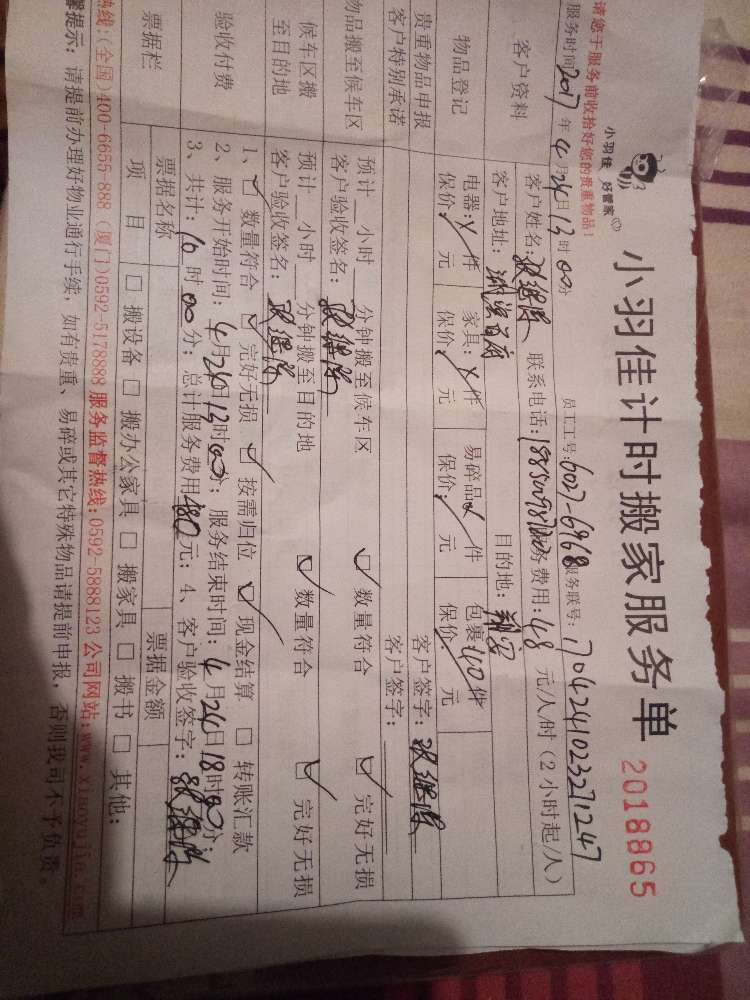 小羽佳计时搬家服务单 2018865
小羽佳 好管家
请您于服务前收拾好您的贵重物品！
员工工号：6027-6968 服务联号：1704241023271247
服务时间 2017 年 4 月 24 日 13 时 00 分
客户资料 客户姓名： 联系电话： 服务费用：48 元/人/时（2小时起/人）
客户地址： 目的地：翔安
物品登记 电器： 件 家具： 件 易碎品 件 包裹 40 件
保价： 元 保价： 元 保价： 元 保价： 元
贵重物品申报 客户签字：
客户特别承诺 客户签字：
物品搬至候车区 预计 小时 分钟搬至候车区 数量符合 完好无损
客户验收签名：
候车区搬至目的地 预计 小时 分钟搬至目的地 数量符合 完好无损
客户验收签名：
验收付费 1、 数量符合 完好无损 按需归位 现金结算 转账汇款
2、服务开始时间：4月24日13时00分；服务结束时间：4月24日18时00分
3、共计：10 时 00 分；总计服务费用 480 元；4、客户验收签字：
票据栏 票据名称 票据金额
项目 搬设备 搬办公家具 搬家具 搬书 其他：
热线：(全国)400-6655-888 (厦门)0592-5178888 服务监督热线：0592-5888123 公司网站：www.xiaoyujia.com
提示：请提前办理好物业通行手续，如有贵重、易碎或其它特殊物品请提前申报，否则我司不予负责。